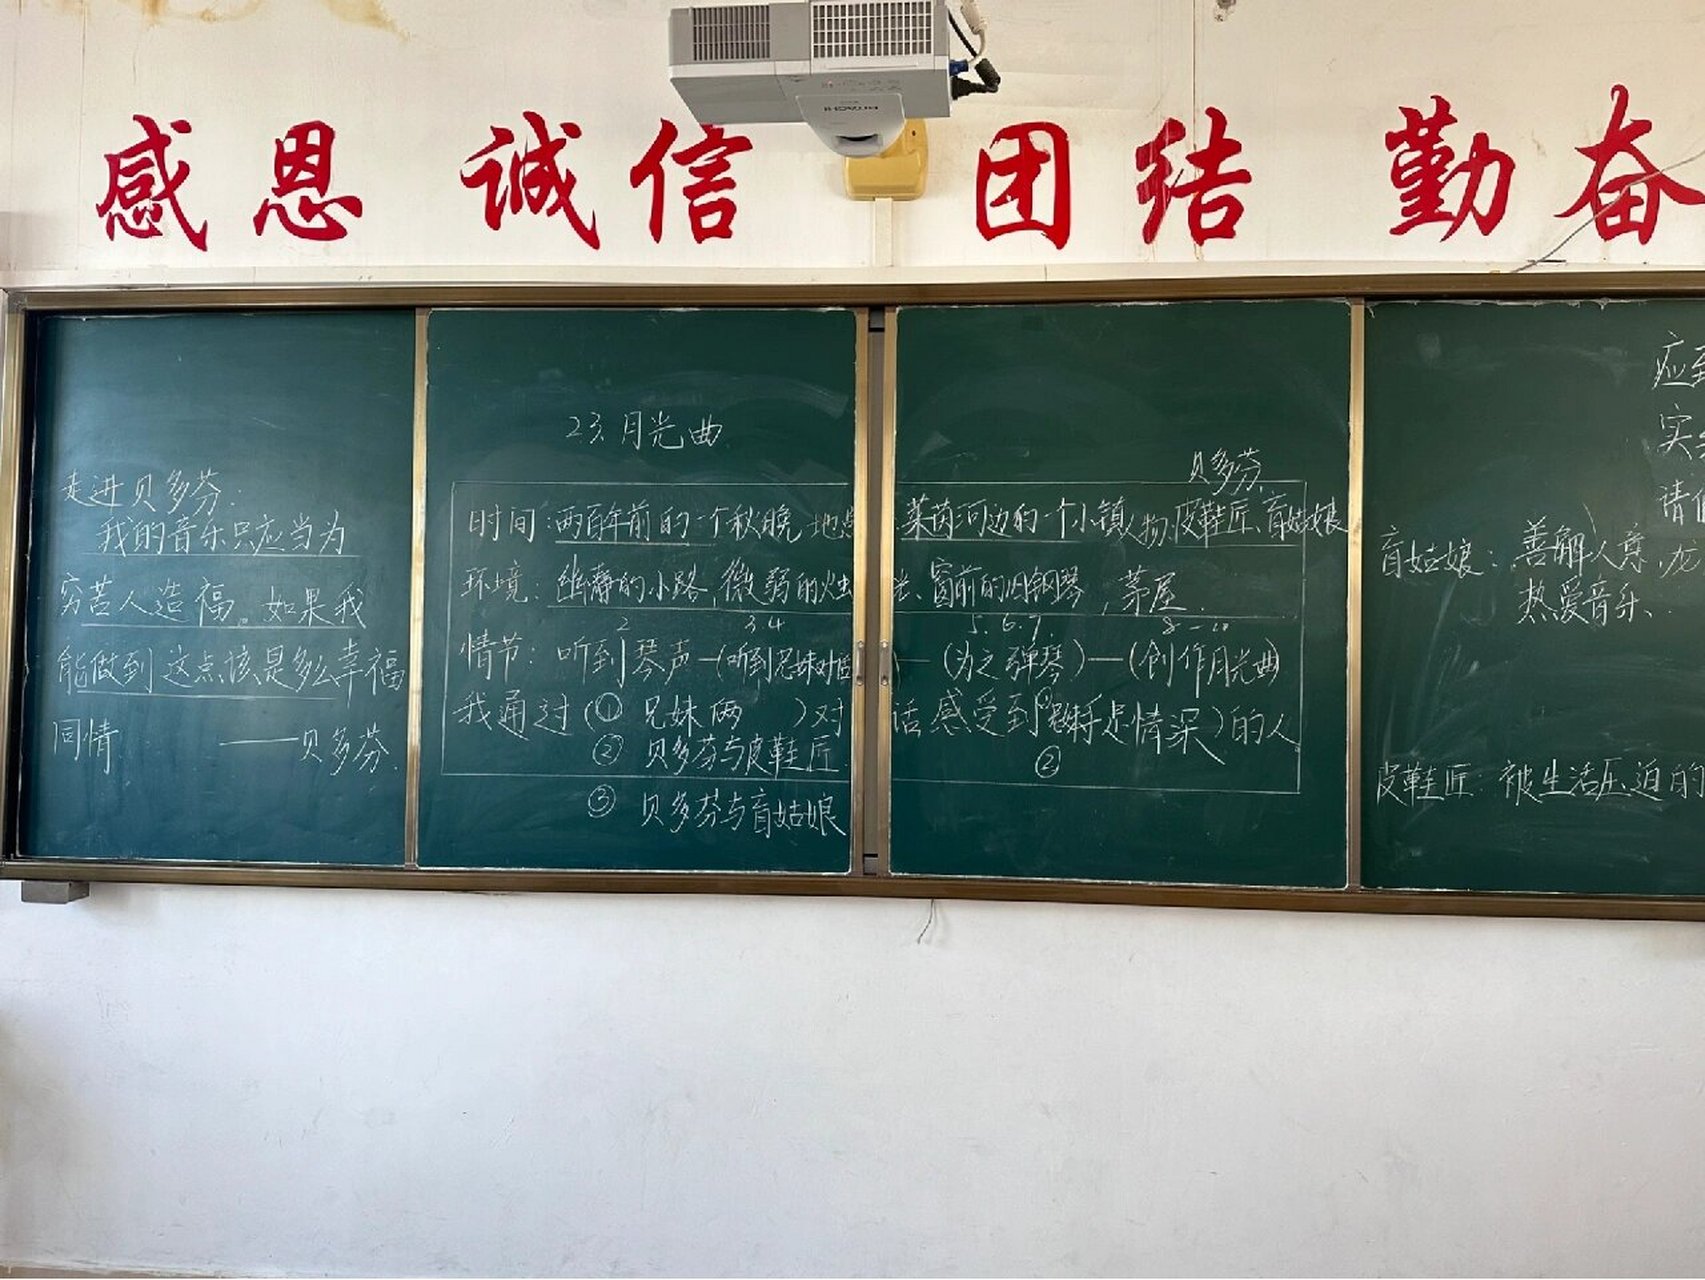 感恩 诚信 团结 勤奋
HITACHI
走进贝多芬:
我的音乐只应当为
穷苦人造福。如果我
能做到这点该是多么幸福
同情 ——贝多芬.
23.月光曲
贝多芬、
时间:两百年前的一个秋晚 地点 莱茵河边的一个小镇 人物:皮鞋匠、盲姑娘
环境:幽静的小路,微弱的烛 光、窗前的旧钢琴,茅屋.
2 3 4 5. 6. 7. 8—10
情节:听到琴声—(听到兄妹对话)—(为之弹琴)—(创作月光曲
我通过(① 兄妹俩 )对 话感受到(①兄妹手足情深)的人
② 贝多芬与皮鞋匠 ②
③ 贝多芬与盲姑娘
应到
实
请
盲姑娘:善解人意,
热爱音乐、
皮鞋匠:被生活压迫的